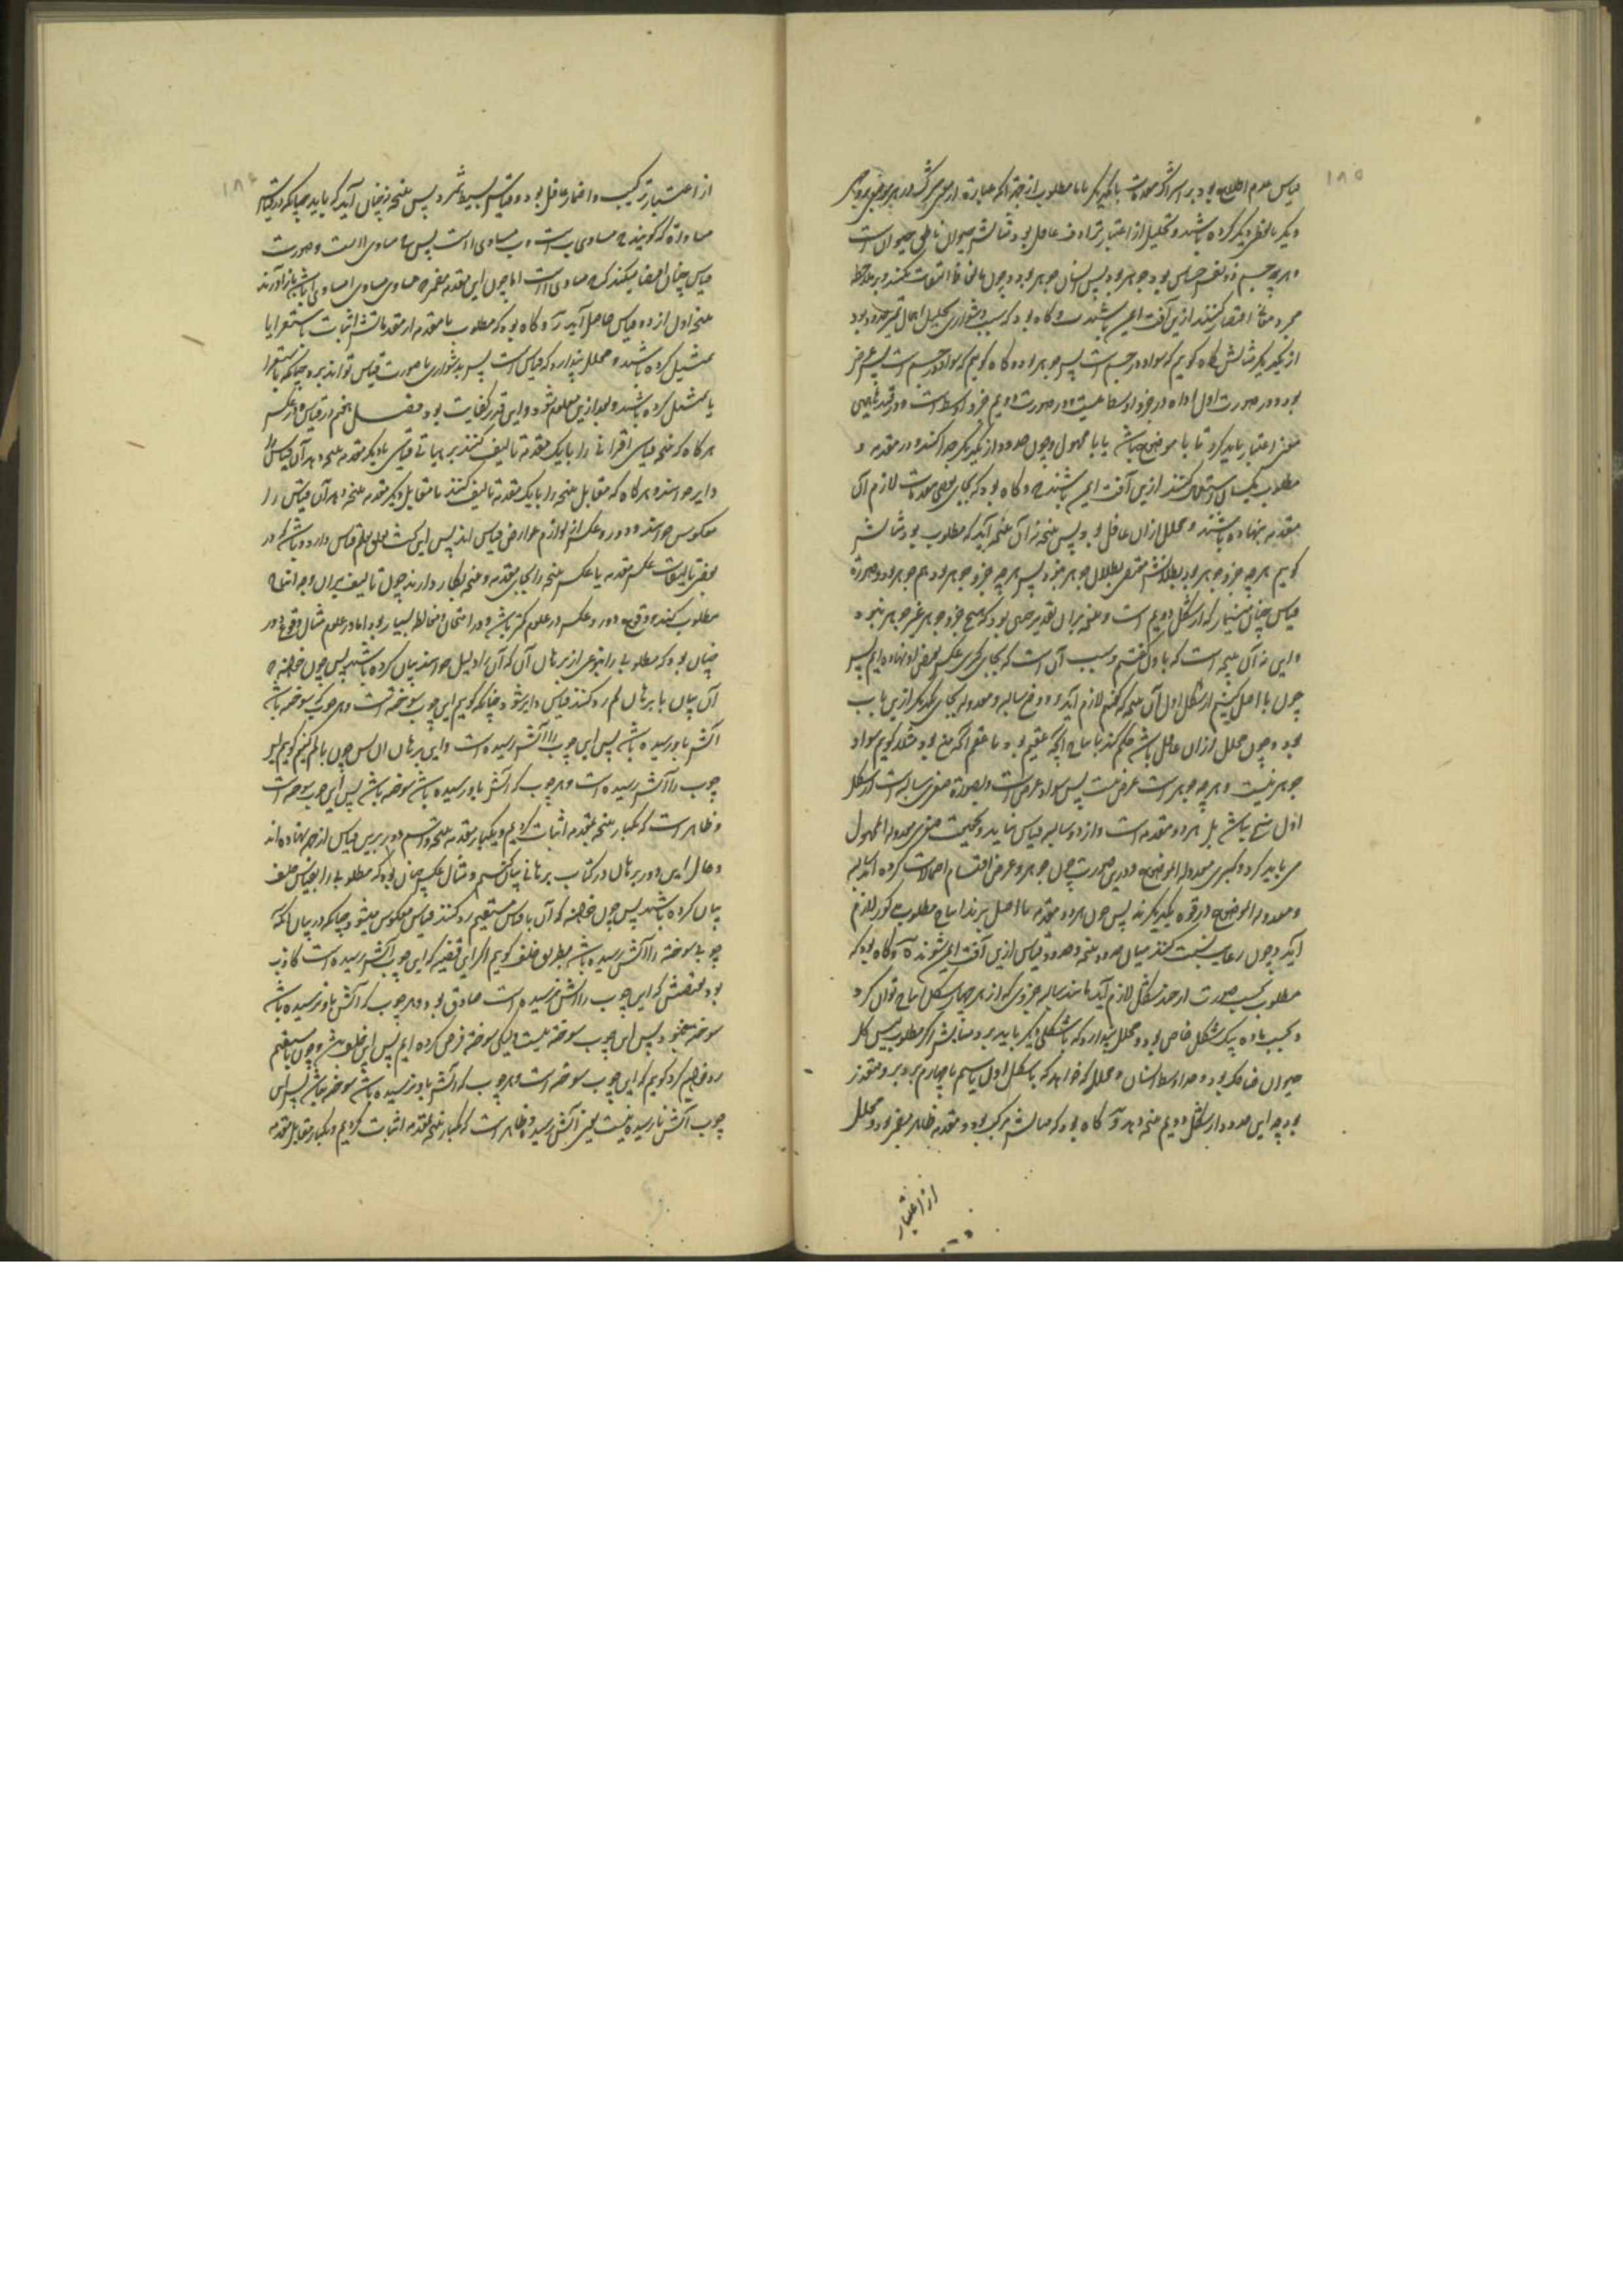 ۱۸۵
دیگر بالفظ دیگر کرده باشند و تحلیل از اعتبار ترادف غافل بود مثالش حیوان ناطق حیوان است
و هر چه جسم ذو نفس حساس بود جوهر بود پس انسان جوهر بود و چون
از یکدیگر مثالش گاه گوییم که سواد در جسم است پس جوهر
بود و در صورت اول اداة در جزو اوسط نیست و در صورت دویم جزو اوسط است و در
معنی اعتبار باید کرد تا با موضوع باشد یا با محمول و چون حدود از یکدیگر جدا کنند و در مقدمه و
مطلوب یکسان استعمال کنند ازین آفت ایمن باشند و گاه بود که بجای بعضی مقدمات لازم آن
مقدمه بنهاده باشند و محلل از آن غافل بود پس نتیجه نه آن آید که مطلوب بود مثالش
گوییم هر چه جزو جوهر بود بطلانش مقتضی بطلان جوهر بود پس هر چه جزو جوهر بود هم جوهر بود و صورة
قیاس چنان مینماید که از شکل دویم است و نتیجه بر آن تقدیر چنین بود که هیچ جزو جوهر غیر جوهر نبود
و این نه آن نتیجه است که باول گفتیم و سبب آن است که بجای کبری عکس نقیض او نهاده ایم پس
چون با اصل کنیم از شکل اول آن نتیجه که گفتیم لازم آید و وقوع سالبه و معدوله بجای یکدیگر ازین باب
بود و چون محلل از آن غافل باشد حکم کند بانتاج آنچه عقیم بود یا عقم آنچه منتج بود مثلا گوییم سواد
جوهر نیست و هر چه جوهر است عرض نیست پس سواد عرض است و بصورة صغری سالبه است از شکل
اول منتج نباشد بل هر دو مقدمه است و از دو سالبه قیاس نیاید و بحقیقت صغری معدولة المحمول
می باید کرد و کبری معدولة الموضوع و درین صورت چون جوهر و عرض
و معدولة الموضوع در قوه یکدیگرند پس چون هر دو مقدمه با اصل برند انتاج مطلوب مذکور لازم
آید و چون رعایت نسبت کنند میان حدود نتیجه و حدود قیاس ازین آفت ایمن شوند و گاه بود که
مطلوب بحسب صورت از چند شکل لازم آید مانند سالبه جزوی که از هر چهار شکل انتاج توان کرد
و بحسب ماده بیک شکل خاص بود و محلل پندارد که باشکلی دیگر باید برد و مثالش اگر مطلوب لیس کل
حیوان ضاحک بود و حد اوسط انسان و محلل که خواهد که باشکل اول یا سیم یا چهارم برد برو متعذر
بود چه این حدود از شکل دویم نتیجه دهد و گاه بود که قیاسش مرکب بود و مقدمه ظاهر مضمر بود و محلل
از اعتبار
۱۸۶
از اعتبار ترکیب و اضمار غافل بود و قیاس بسیط شمرد پس نتیجه نه چنان آید که باید چنانکه در قیاس
مساواة که گویند ج مساوی ب است و ب مساوی ا است پس ج مساوی ا است و صورت
قیاس چنان اقتضا میکند که ج مساوی ا است اما چون این مقدمه مضمر
نتیجه اول از دو قیاس حاصل آید و گاه بود که مطلوب یا مقدمه از مقدماتش اثبات باستقرا یا
تمثیل کرده باشند و محلل پندارد که قیاس است پس بدشواری با صورت قیاس تواند برد چنانکه باستقرا
یا تمثیل کرده باشند و بعد ازین معلوم شود و این قدر کفایت بود فصل
هر گاه که نتیجه قیاس اقترانی را با یک مقدمه تالیف کنند بر هیاتی قیاسی تا دیگر مقدمه نتیجه دهد آن قیاس را
دایر خوانند و هر گاه که مقابل نتیجه را با یک مقدمه تالیف کنند تا مقابل دیگر مقدمه نتیجه دهد آن قیاس را
معکوس خوانند و دور و عکس از لوازم عوارض قیاس اند پس این بحث تعلق بعلم قیاس دارد و باشد که در
بعضی تالیفات عکس مقدمه یا عکس نتیجه را بجای مقدمه و نتیجه بکار دارند چون تالیف بر آن وجه انتاج
مطلوب کند و وقوع دور و عکس در علوم کمتر باشد و در امتحان و مغالطه بسیار بود اما در علوم مثال وقوع دور
چنان بود که مطلوبی را بنوعی از برهان آن که آن را دلیل خوانند بیان کرده باشند پس چون خواهند که
آن بیان با برهان لم رد کنند قیاس دایر شود چنانکه گوییم این چوب سوخته است و هر چوب که سوخته باشد
آتش باو رسیده باشد پس این چوب را آتش رسیده است و این برهان ان است پس چون با لم کنیم گوییم این
چوب را آتش رسیده است و هر چوب که آتش باو رسیده باشد سوخته باشد پس این چوب سوخته است
و ظاهر است که یکبار نتیجه بمقدمه اثبات کردیم و یکبار مقدمه بنتیجه و اسم دور برین قیاس ازین جهت نهاده اند
و حال این دور برهان در کتاب برهانی بیان کنیم و مثال عکس چنان بود که مطلوبی را بقیاس خلف
بیان کرده باشند پس چون خواهند که آن با قیاس مستقیم رد کنند قیاس معکوس میشود چنانکه در بیان آنکه
چوبی سوخته را آتش رسیده باشد بطریق خلف گوییم اگر این قضیه که این چوب را آتش رسیده است کاذب
بود نقیضش که این چوب را آتش نرسیده است صادق بود و هر چوب که آتش باو نرسیده باشد
سوخته نبود پس این چوب سوخته نیست و لیکن سوخته فرض کرده ایم پس این خلف باشد و چون با مستقیم
رد خواهیم کرد گوییم که این چوب سوخته است و هر چوب که آتش باو نرسیده باشد سوخته نباشد پس این
چوب آتش نارسیده نیست یعنی آتش رسیده و ظاهر است که یکبار نتیجه بمقدمه اثبات کردیم و یکبار مقابل مقدمه